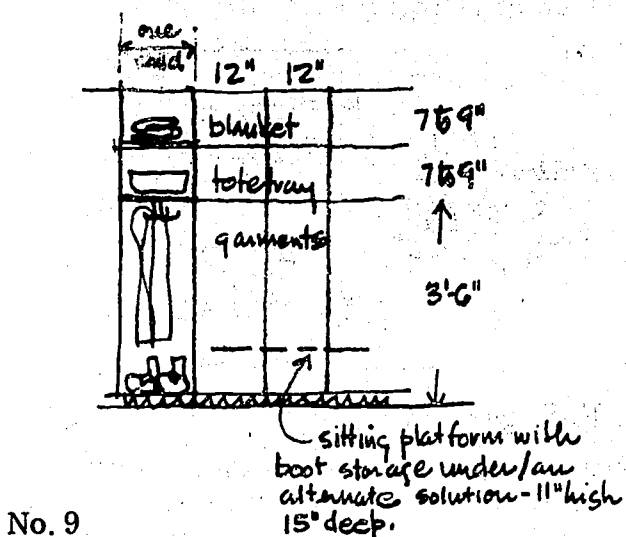 one
child
12" 12"
blanket 7 to 9"
totetray 7 to 9"
garments
3'-6"
sitting platform with
boot storage under/an
alternate solution - 11" high
15" deep.
No. 9